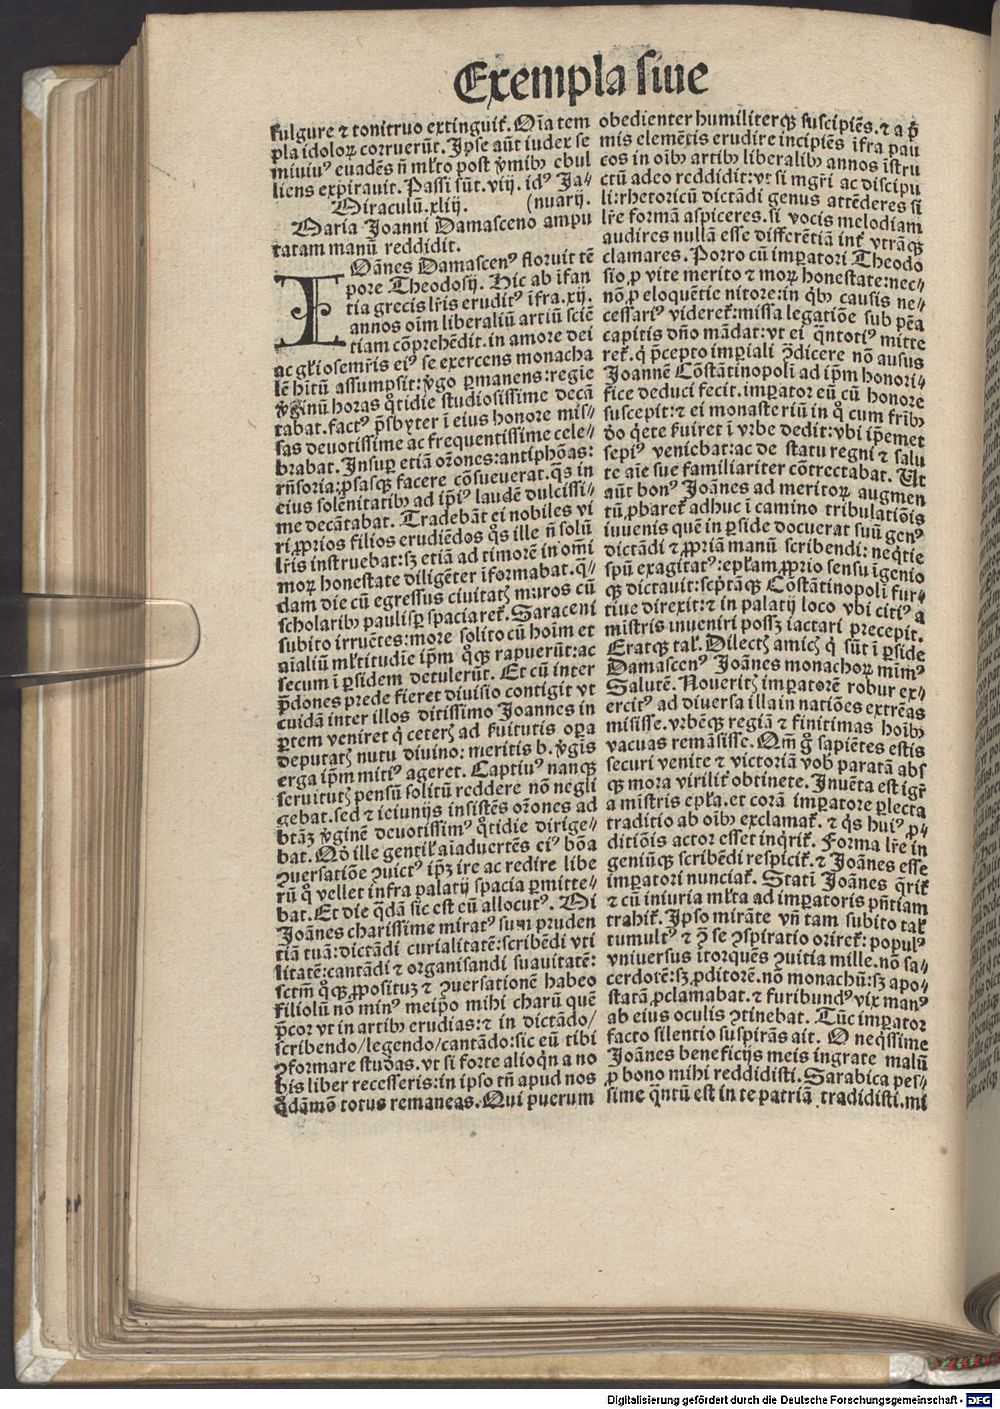 Exempla siue
fulgure ⁊ tonitruo extinguit̃. Oĩa tem
pla idoloꝝ corruerũt. Ipse aũt iudex se
miuiuꝰ euadẽs ñ mĺto post v̓mibꝫ ebul
liens expirauit. Passi sũt. viij. idꝰ Ja⸗
Miraculũ. xlij. (nuarij.
Maria Joanni Damasceno ampu
tatam manũ reddidit.
IOãnes Damascenꝰ floruit tẽ
pore Theodosij. Hic ab ĩfan
tia grecis lr̃is eruditꝰ ĩfra. xij.
annos oĩm liberaliũ artiũ sciẽ
tiam cõprehẽdit. in amore dei
ac gĺiosemr̃is eiꝰ se exercens monacha
lẽ hĩtũ assumpsit: v̓go ꝑmanens: regie
v̓ginũ horas q̊tidie studiosissime decã
tabat. factꝰ p̃sbyter ĩ eius honore mis⸗
sas deuotissime ac frequentissime cele⸗
brabat. Insuꝑ etiã oř̃ones: antiphõas:
rñsoria: ꝓsasqꝫ facere cõsueuerat. q̃s in
eius solẽnitatibꝫ ad ip̃iꝰ laudẽ dulcissi⸗
me decãtabat. Tradebãt ei nobiles vi
ri ꝓprios filios erudiẽdos q̊s ille ñ solũ
lr̃is instruebat: sꝫ etiã ad timorẽ in om̃i
moꝝ honestate diligẽter ĩformabat. q̃⸗
dam die cũ egressus ciuitatꝭ muros cũ
scholaribꝫ paulisꝑ spaciaret̃. Saraceni
subito irruẽtes: more solito cũ hoĩm et
aĩaliũ mĺtitudĩe ip̃m q̊qꝫ rapuerũt: ac
secum ĩ ꝑsidem detulerũt. Et cũ inter
p̃dones prede fieret diuisio contigit vt
cuidã inter illos ditissimo Joannes in
ꝑtem veniret q̇ ceterꝭ ad ẜuitutis oꝑa
deputatꝭ nutu diuino: meritis b. v̓gĩs
erga ip̃m mitiꝰ ageret. Captiuꝰ nanqꝫ
seruitutꝭ pensũ solitũ reddere nõ negli
gebat. sed ⁊ ieiunijs insistẽs oř̃ones ad
btãꝫ v̓ginẽ deuotissimꝰ q̊tidie dirige⸗
bat. Qd̓ ille gentiĺ aĩaduertẽs eiꝰ bõa
ꝯuersatiõe ꝯuictꝰ ip̃ꝫ ire ac redire libe
rũ q̊ vellet infra palatij spacia ꝑmitte⸗
bat. Et die q̃dã sic est cũ allocutꝰ. Mi
Joãnes charissime miratꝰ sum pruden
tiã tuã: dictãdi curialitatẽ: scribẽdi vti
litatẽ: cantãdi ⁊ organisandi suauitatẽ:
sctm̃ q̊qꝫ ꝓpositũ ⁊ ꝯuersationẽ habeo
filiolũ nõ minꝰ meip̃o mihi charũ quẽ
p̃cor vt in artibꝫ erudias: ⁊ in dictãdo/
scribendo/legendo/cantãdo: sic eũ tibi
ꝯformare studeas. vt si forte alioq̇n a no
bis liber recesseris: in ipso tñ apud nos
q̊dãmõ totus remaneas. Qui puerum
obedienter humiliterqꝫ suscipiẽs. ⁊ a p̃
mis elemẽtis erudire incipiẽs ĩfra pau
cos in oĩbꝫ artibꝫ liberalibꝫ annos ĩstru
ctũ adeo reddidit: vt si mgr̃i ac discipu
li: rhetoricũ dictãdi genus attẽderes si
lr̃e formã aspiceres. si vocis melodiam
audires nullã esse differẽtiã int̃ vtrãqꝫ
clamares. Porro cũ imꝑatori Theodo
sio ꝓ vite merito ⁊ moꝝ honestate: nec⸗
nõ ꝓ eloquẽtie nitore: in q̇bꝫ causis ne⸗
cessariꝰ videret̃: missa legatiõe sub pẽa
capitis dño mãdat: vt ei q̃ntotiꝰ mitte
ret̃. q̇ p̃cepto imꝑiali ꝯ̃dicere nõ ausus
Joannẽ Cõstãtinopolĩ ad ip̃m honori⸗
fice deduci fecit. imꝑator eũ cũ honore
suscepit: ⁊ ei monasteriũ in q̊ cum fr̃ibꝫ
d̓o q̇ete ẜuiret ĩ vrbe dedit: vbi ip̃emet
sepiꝰ veniebat: ac de statu regni ⁊ salu
te aĩe sue familiariter cõtrectabat. Ut
aũt bonꝰ Joãnes ad meritoꝝ augmen
tũ ꝓbaret̃ adhuc ĩ camino tribulatiõis
iuuenis quẽ in ꝑside docuerat suũ genꝰ
dictãdi ⁊ ꝓpriã manũ scribendi: neq̇tie
spũ exagitatꝰ: ep̃ĺam ꝓprio sensu ĩgenio
qꝫ dictauit: sc̃ptãqꝫ Cõstãtinopolĩ fur⸗
tiue direxit: ⁊ in palatij loco vbi citiꝰ a
mĩstris inueniri possꝫ iactari precepit.
Eratqꝫ taĺ. Dilectꝭ amicꝭ q̇ sũt ĩ ꝑside
Damascenꝰ Joãnes monachoꝝ mĩmꝰ
Salutẽ. Noueritꝭ imꝑatorẽ robur ex⸗
ercitꝰ ad diuersa illa in natiões extrẽas
misisse. vrbẽqꝫ regiã ⁊ finitimas hoĩbꝫ
vacuas remãsisse. Qm̃ g̊ sapiẽtes estis
securi venite ⁊ victoriã vob̓ paratã abs
qꝫ mora virilit̃ obtinete. Inuẽta est igr̃
a mĩstris ep̃ĺa. et corã imꝑatore ꝑlecta
traditio ab oĩbꝫ exclamat̃. ⁊ q̇s huiꝰ ꝓ⸗
ditiõis actor esset inq̇rit̃. Forma lr̃e in
geniũqꝫ scribẽdi respicit̃. ⁊ Joãnes esse
imꝑatori nunciat̃. Statĩ Joãnes q̇rit̃
⁊ cũ iniuria mĺta ad imꝑatoris pñtiam
trahit̃. Ipso mirãte vñ tam subito taĺ
tumultꝰ ⁊ ꝯ̃ se ꝯspiratio oriret̃: populꝰ
vniuersus ĩtorquẽs ꝯuitia mille. nõ sa⸗
cerdotẽ: sꝫ ꝓditorẽ. nõ monachũ: sꝫ apo⸗
statã ꝓclamabat. ⁊ furibundꝰ vix manꝰ
ab eius oculis ꝯtinebat. Tũc imꝑator
facto silentio suspirãs ait. O neq̇ssime
Joãnes beneficijs meis ingrate malũ
ꝓ bono mihi reddidisti. Sarabica pes⸗
sime q̃ntũ est in te patriã tradidisti. mi
Digitalisierung gefördert durch die Deutsche Forschungsgemeinschaft - DFG